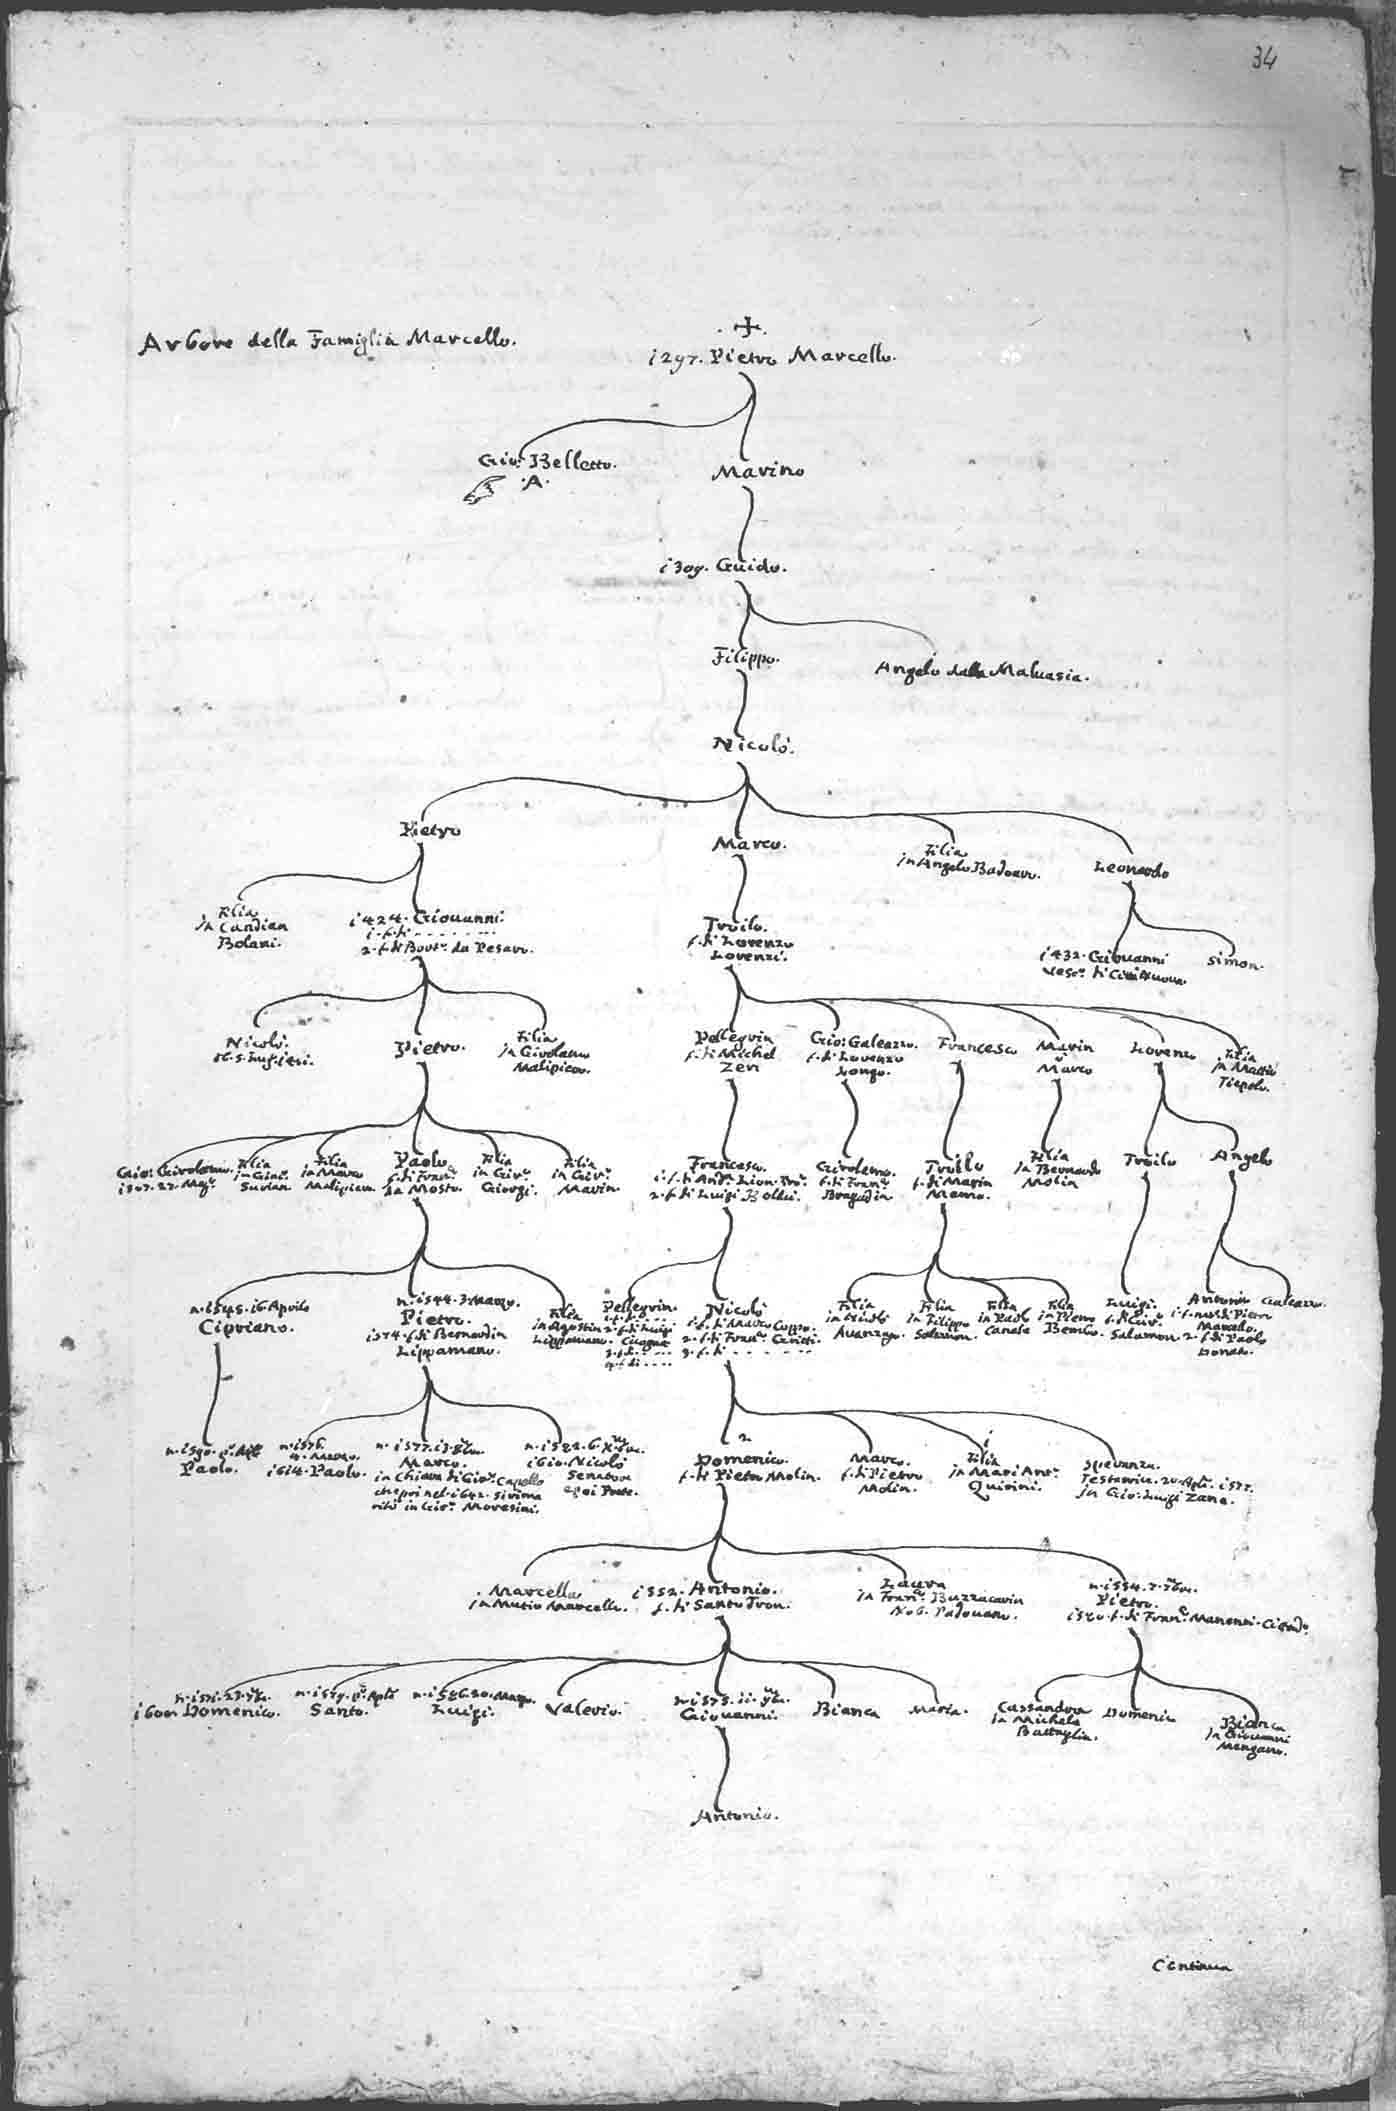 34
Arbore della Famiglia Marcello.
1297. Pietro Marcello.
Gio: Belletto.
.A.
Marino
1309. Guido.
Filippo.
Angelo dalla Maluasia.
Nicolò.
Pietro
Marco.
Filia
in Angelo Badoaro.
Leonardo
Filia
in Candian
Bolani.
1424. Giouanni
1. f. di - - - - - - -
2. f. di Bort.º da Pesaro.
Troilo.
f. di Lorenzo
Lorenzi.
1432. Giouanni
Vesc.º di Cittanuoua
Simon.
Nicolò.
Pietro.
Filia
in Girolamo
Malipiero.
Pellegrin
f. di Michel
Zen
Gio: Galeazzo.
f. di Lorenzo
Longo.
Francesco
Marin
ò
Marco
Lorenzo
Filia
in Mattio
Tiepolo.
Gio: Girolamo.
Filia
in Giac.º
Surian.
Filia
in Marco
Malipiero.
Paolo
f. di Fran.º
da Mosto.
Filia
in Gir.º
Giorgi.
Filia
in Gir.º
Marin.
Francesco.
1. f. di And.ª Lion
2. f. di Luigi Bollui.
Girolamo.
f. di Fran.º
Bragadin
Troilo
f. di Marin
Mauro.
Filia
in Bernardo
Molin
Troilo
Angelo
n. 1545. 16. Aprile
Cipriano.
n. 1544. 3. Marzo.
Pietro.
1574. f. di Bernardin
Lippamano.
Filia
in Agostin
Lippamano.
Pellegrin.
1. f. di - - -
2. f. di Luigi
3. f. di - - -
4. f. di - - -
Nicolò
1. f. di Marco Coppo.
2. f. di Fran.º
3. f. di - - - - - - -
Filia
in Nicolò
Auanzago.
Filia
in Filippo
Salamon.
Filia
in Paolo
Canale
Filia
in Piero
Bembo.
Luigi.
f. di Gir.º
Salamon.
Antonio
1. f. nat. di Pietro
Marcello.
2. f. di Paolo
Donado.
Galeazzo.
Paolo.
n. 1576.
4. Marzo.
1614. Paolo.
n. 1577. 13. 8bre.
Marco.
in Chiara di Gio: Capello
che poi nel 1642. si rima
ritò in Gio: Moresini.
n. 1582. 6. Xbre.
1610. Nicolò
Senatore
2
Domenico.
f. di Pietro Molin.
Marco.
f. di Pietro
Molin.
1
Filia
in Mari Ant.º
Quirini.
Speranza.
in Gio: Luigi Zane.
Marcella
in Mutio Marcello.
1552. Antonio.
f. di Santo Tron.
Laura
in Fran.º Buzzacarin
Nob. Padouano.
n. 1554. 7. 7bre.
Pietro.
1580. f. di Fran.º Manenti
1600. Domenico.
Santo.
n. 1586. 20. Marzo.
Luigi.
Valerio.
n. 1575. 11. 9bre.
Giouanni.
Bianca
Maria.
Cassandra
in Michele
Battaglia.
Domenico
Bianca
in Giouanni
Mengano.
Antonio.
Continua